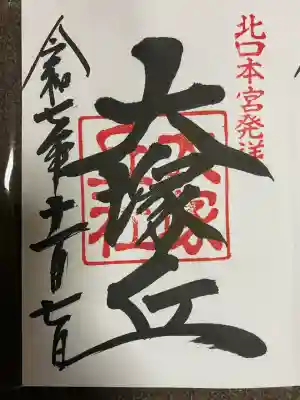 北口本宮発祥
大塚丘
令和七年十一月七日